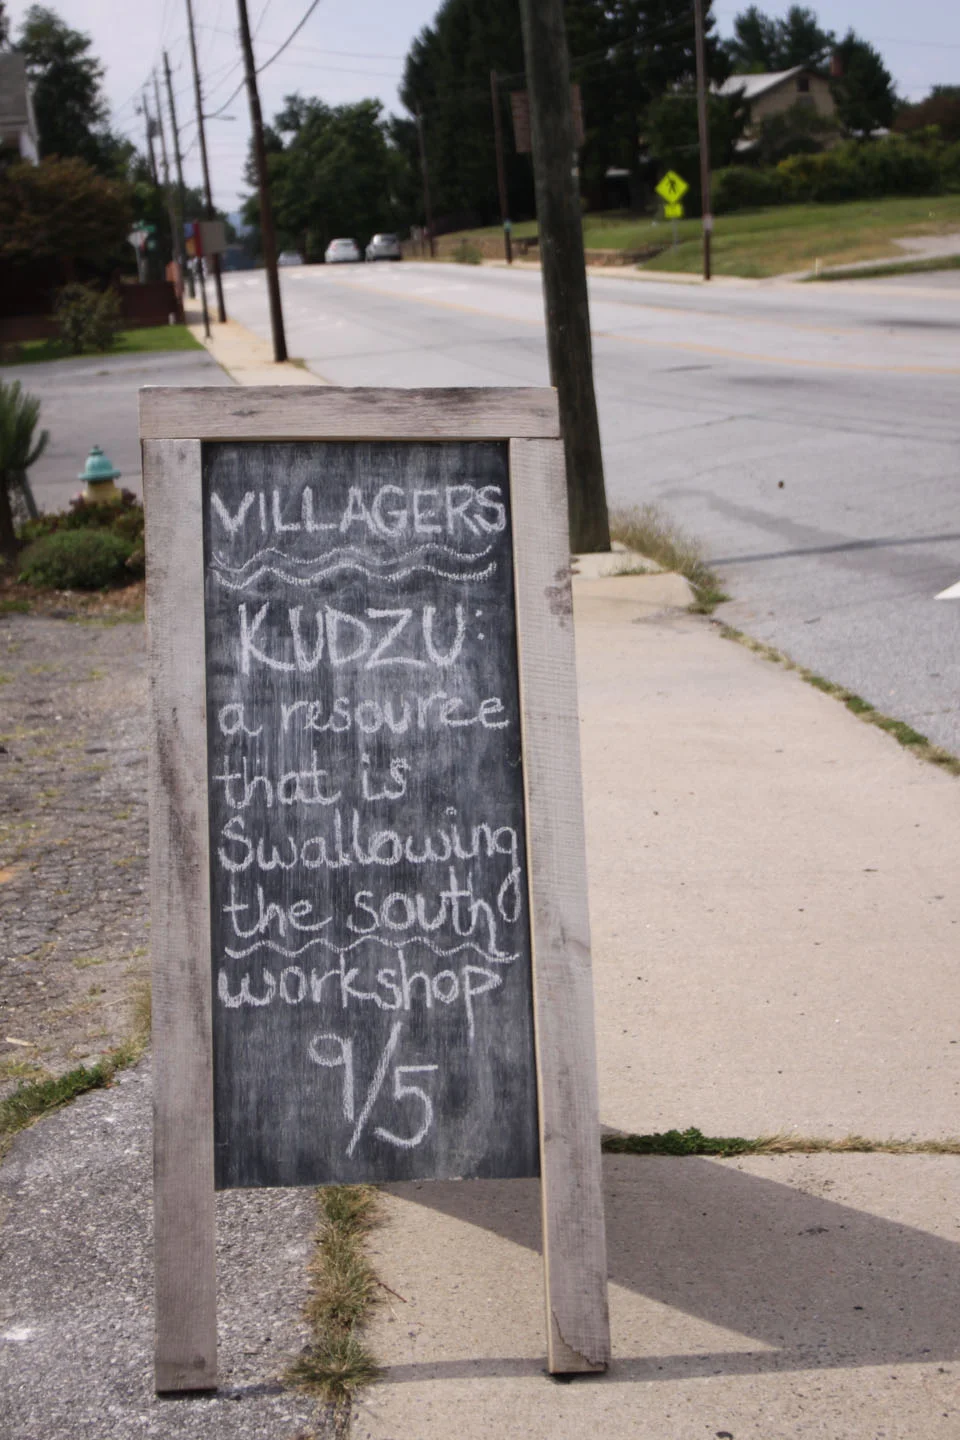 VILLAGERS
KUDZU:
a resource
that is
Swallowing
the south
workshop
9/5